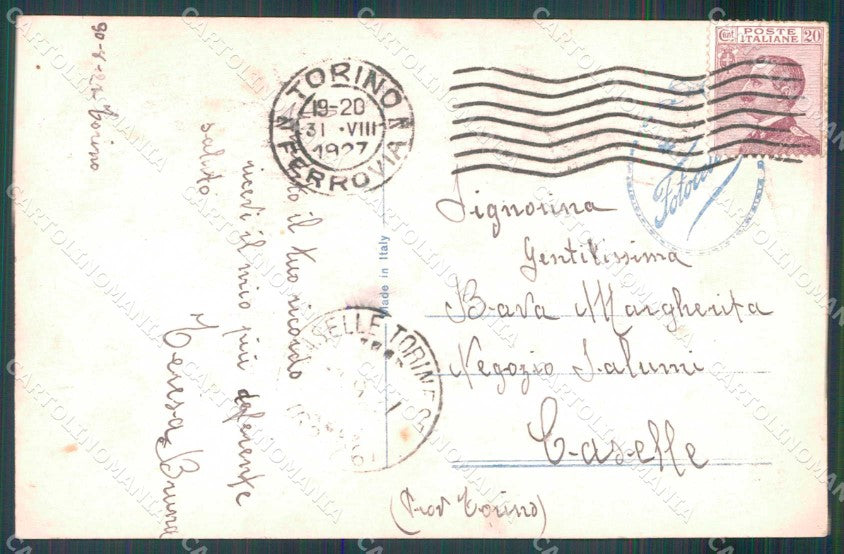 30-8-27 Torino
to il tuo ricordo
ricevi il mio più deferente
saluto
Teresa Bruna
TORINO
19-20
31 · VIII
1927
FERROVIA
Made in Italy
CASELLE TORINESE
POSTE
ITALIANE
Cent. 20
Fotocelere
Signorina
Gentilissima
Bava Margherita
Negozio Salumi
Caselle
(Prov Torino)
CARTOLINOMANIA